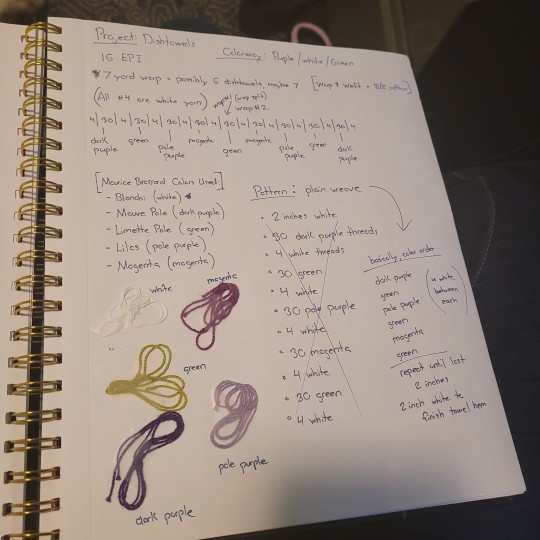 Project: Dishtowels
Colorway: Purple/white/Green
16 EPI
7 yard warp = possibly 6 dishtowels, maybe 7
[Warp & Weft = 8/2 cotton]
(All #4 are white yarn)
warp #1 (warp split)
warp #2
4|30|4|30|4|30|4|30|4|30|4|30|4|30|4|30|4|30|4
dark purple
green
pale purple
magenta
green
magenta
pale purple
green
dark purple
[Maurice Brassard Colors Used:]
- Blanchi (white)
- Mauve Pale (dark purple)
- Limette Pale (green)
- Lilas (pale purple)
- Magenta (magenta)
Pattern: plain weave
• 2 inches white
• 30 dark purple threads
• 4 white threads
• 30 green
• 4 white
• 30 pale purple
• 4 white
• 30 magenta
• 4 white
• 30 green
• 4 white
basically, color order
dark purple
green
pale purple
green
magenta
green
(4 white between each)
repeat until last
2 inches
2 inch white to
finish towel hem
white
magenta
green
pale purple
dark purple